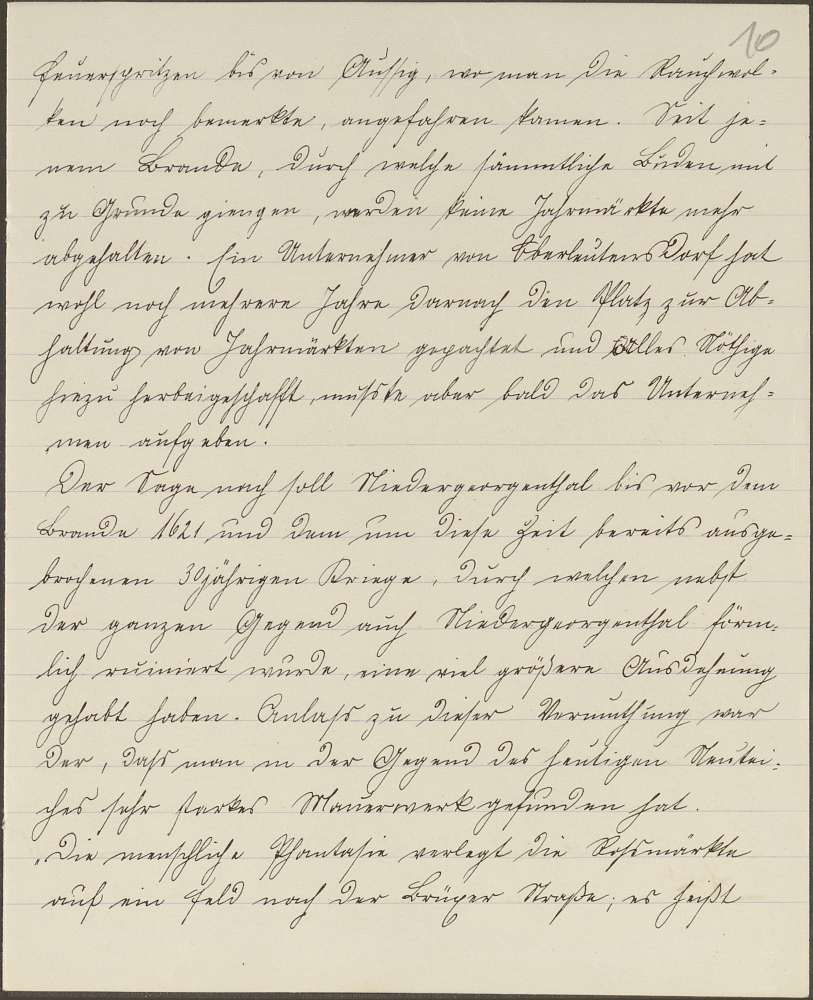 10
Feuerspritzen bis von Aussig, wo man die Rauchwol-
ken noch bemerkte, angefahren kamen. Seit je-
nem Brande, durch welche sämmtliche Buden mit
zu Grunde giengen, werden keine Jahrmärkte mehr
abgehalten. Ein Unternehmer von Oberleutensdorf hat
wohl noch mehrere Jahre darnach den Platz zur Ab-
haltung von Jahrmärkten gepachtet und Alles Nöthige
hiezu herbeigeschafft, musste aber bald das Unterneh-
men aufgeben.
Der Sage nach soll Niedergeorgenthal bis vor dem
Brande 1621 und dem um diese Zeit bereits ausge-
brochenen 30jährigen Kriege, durch welchen nebst
der ganzen Gegend auch Niedergeorgenthal förm-
lich ruiniert wurde, eine viel größere Ausdehnung
gehabt haben. Anlass zu dieser Vermuthung war
der, dass man in der Gegend des heutigen Neutei-
ches sehr starkes Mauerwerk gefunden hat.
Die menschliche Phantasie verlegt die Rossmärkte
auf ein Feld nach der Brüxer Straße; es heißt